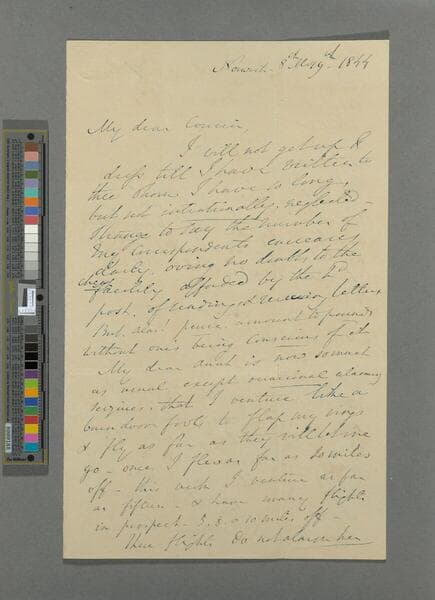 Norwich 8th 1844
My dear Cousin,
I will not get up &
dress till I have written to
thee whom I have so long,
but not intentionally, neglected -
Strange to say the number of
my correspondents
daily, owing no doubt to the
cheap facility afforded by the 2d
post, of sending & receiving letters
But alas! pence amount to pounds
without ones being conscious of it
My dear Aunt is now so much
as usual except occasional alarming
seizures, that I venture like a
barn door fowls to flap my wings
& fly as far as they will let me
go - once I flew as far as 20 miles
off - this week I venture as far
as fifteen - & have many flights
in prospect - 5. 8. & 10 miles off -
These flights do not alarm her